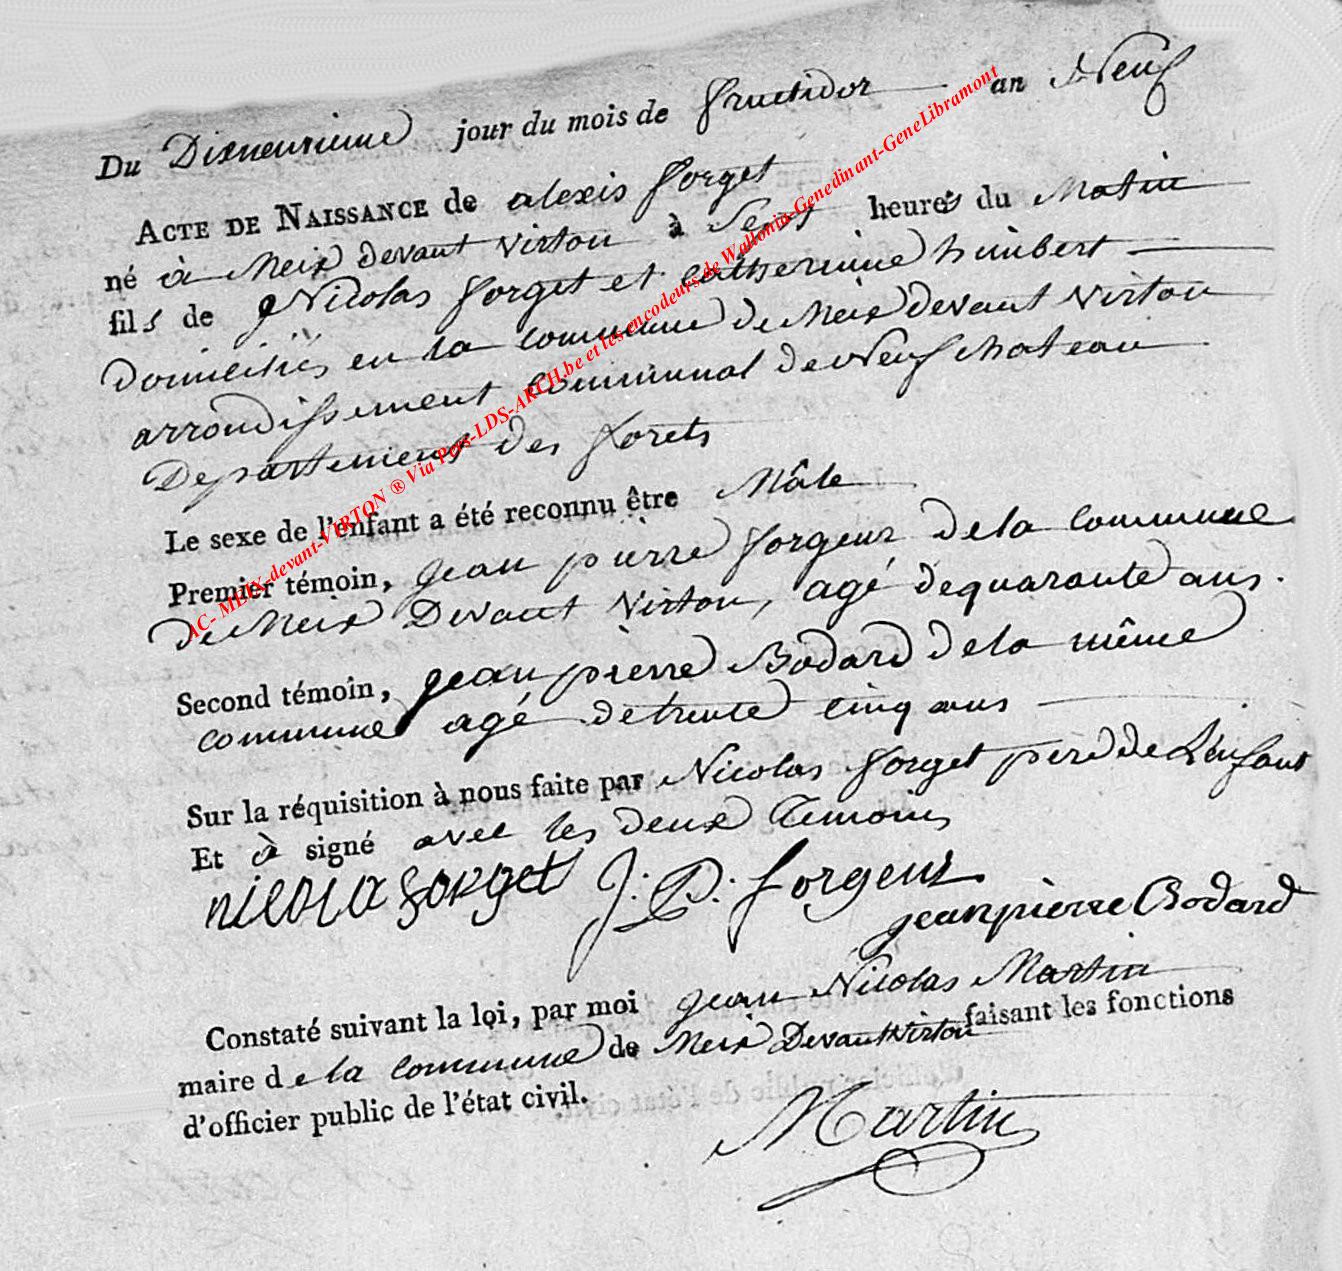 Du Dixneuvieme jour du mois de fructidor an Neuf
ACTE DE NAISSANCE de alexis forget
né à Meix devant virton à Sept heures du Matin
fils de Nicolas forget et catherinne humbert
Domiciliés en la commune de Meix devant virton
arrondissement communal de Neufchateau
Departement des forets
Le sexe de l'enfant a été reconnu être Mâle
Premier témoin, jean pierre forgeur de la commune
de Meix Devant Virton, agé de quarante ans.
Second témoin, jean pierre Bodard de la même
commune agé de trente cinq ans
Sur la réquisition à nous faite par Nicolas forget pere de L'enfant
Et à signé avec les deux Temoins
nicola forget J. P. forgeur
jeanpierre Bodard
Constaté suivant la loi, par moi jean Nicolas Martin
maire de la commune de Meix Devant Virton faisant les fonctions
d'officier public de l'état civil.
Martin
AC- MEIX-devant-VIRTON ® Via Pers-LDS-ARCH.be et les encodeurs de Wallonia-Genedinant-GeneLibramont